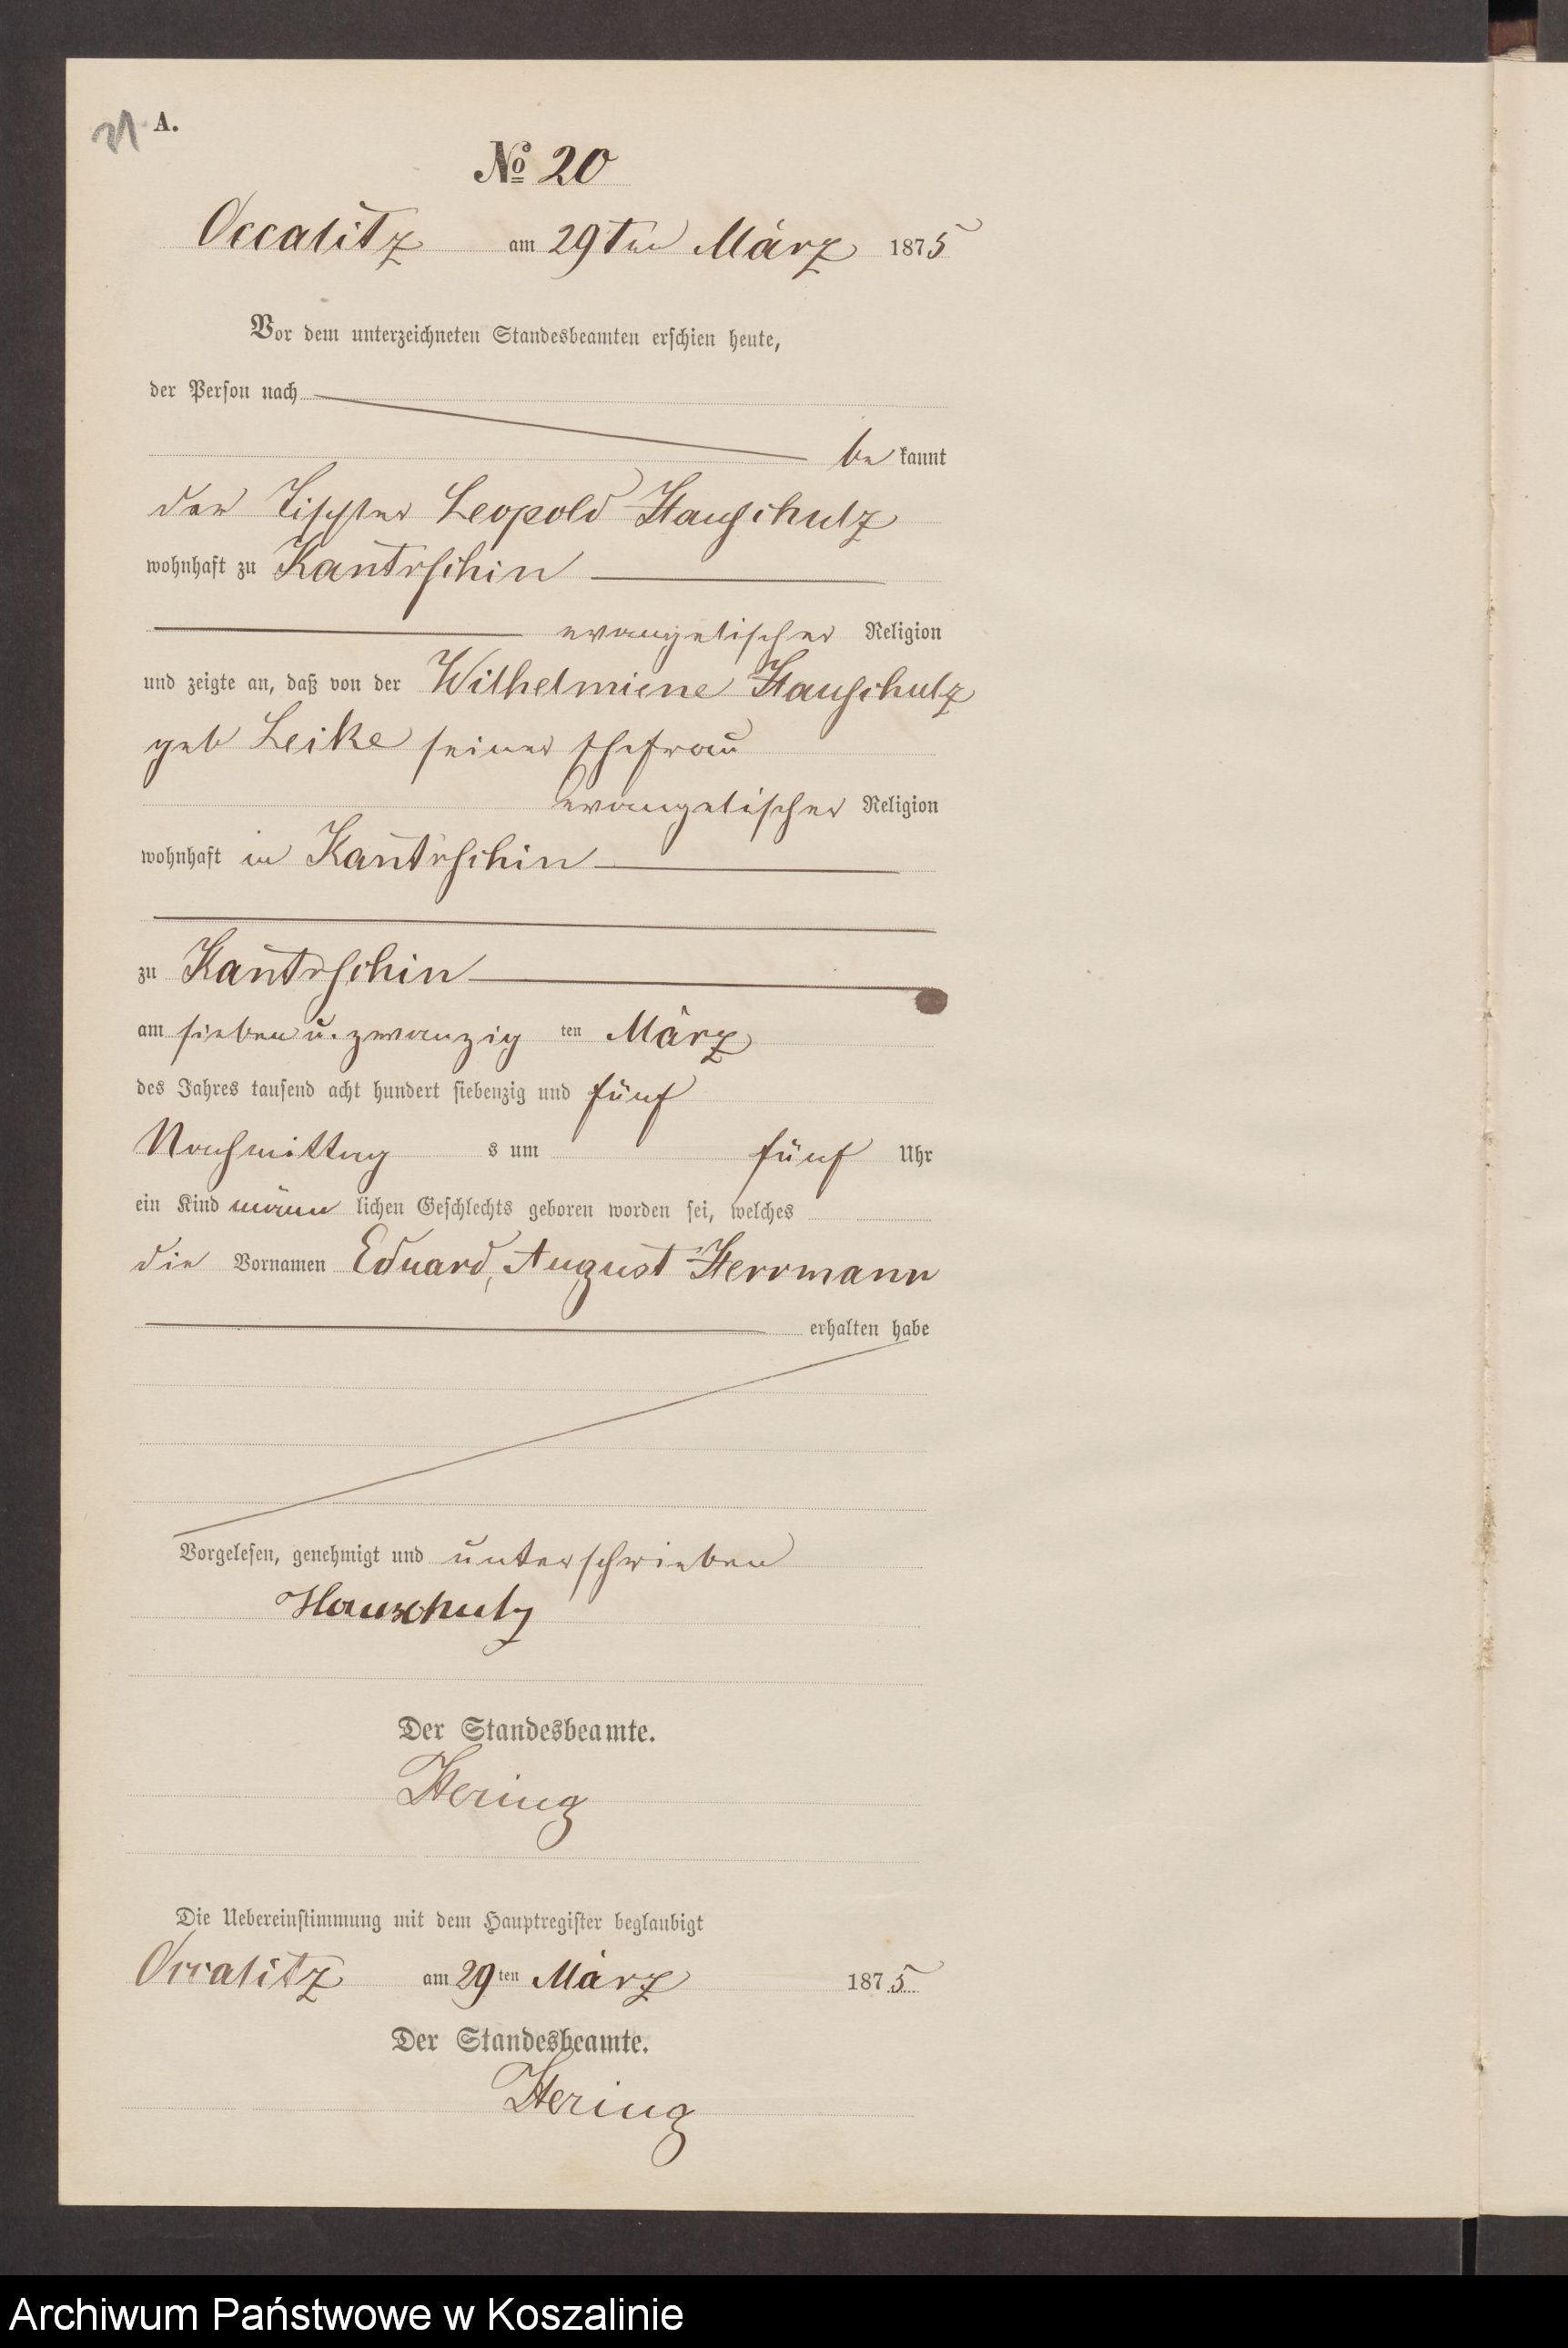 21. A.
№ 20
Occalitz am 29ten März 1875
Vor dem unterzeichneten Standesbeamten erschien heute,
der Person nach
be kannt
der Tischler Leopold Hauschulz
wohnhaft zu Kantrschin
evangelischer Religion
und zeigte an, daß von der Wilhelmiene Hauschulz
geb Leike seiner Ehefrau
evangelischer Religion
wohnhaft in Kantrschin
zu Kantrschin
am sieben u. zwanzig ten März
des Jahres tausend acht hundert siebenzig und fünf
Nachmittag s um fünf Uhr
ein Kind männ lichen Geschlechts geboren worden sei, welches
die Vornamen Eduard, August Herrmann
erhalten habe
Vorgelesen, genehmigt und unterschrieben
Hauschulz
Der Standesbeamte.
Hering
Die Uebereinstimmung mit dem Hauptregister beglaubigt
Occalitz am 29 ten März 1875
Der Standesbeamte.
Hering
Archiwum Państwowe w Koszalinie